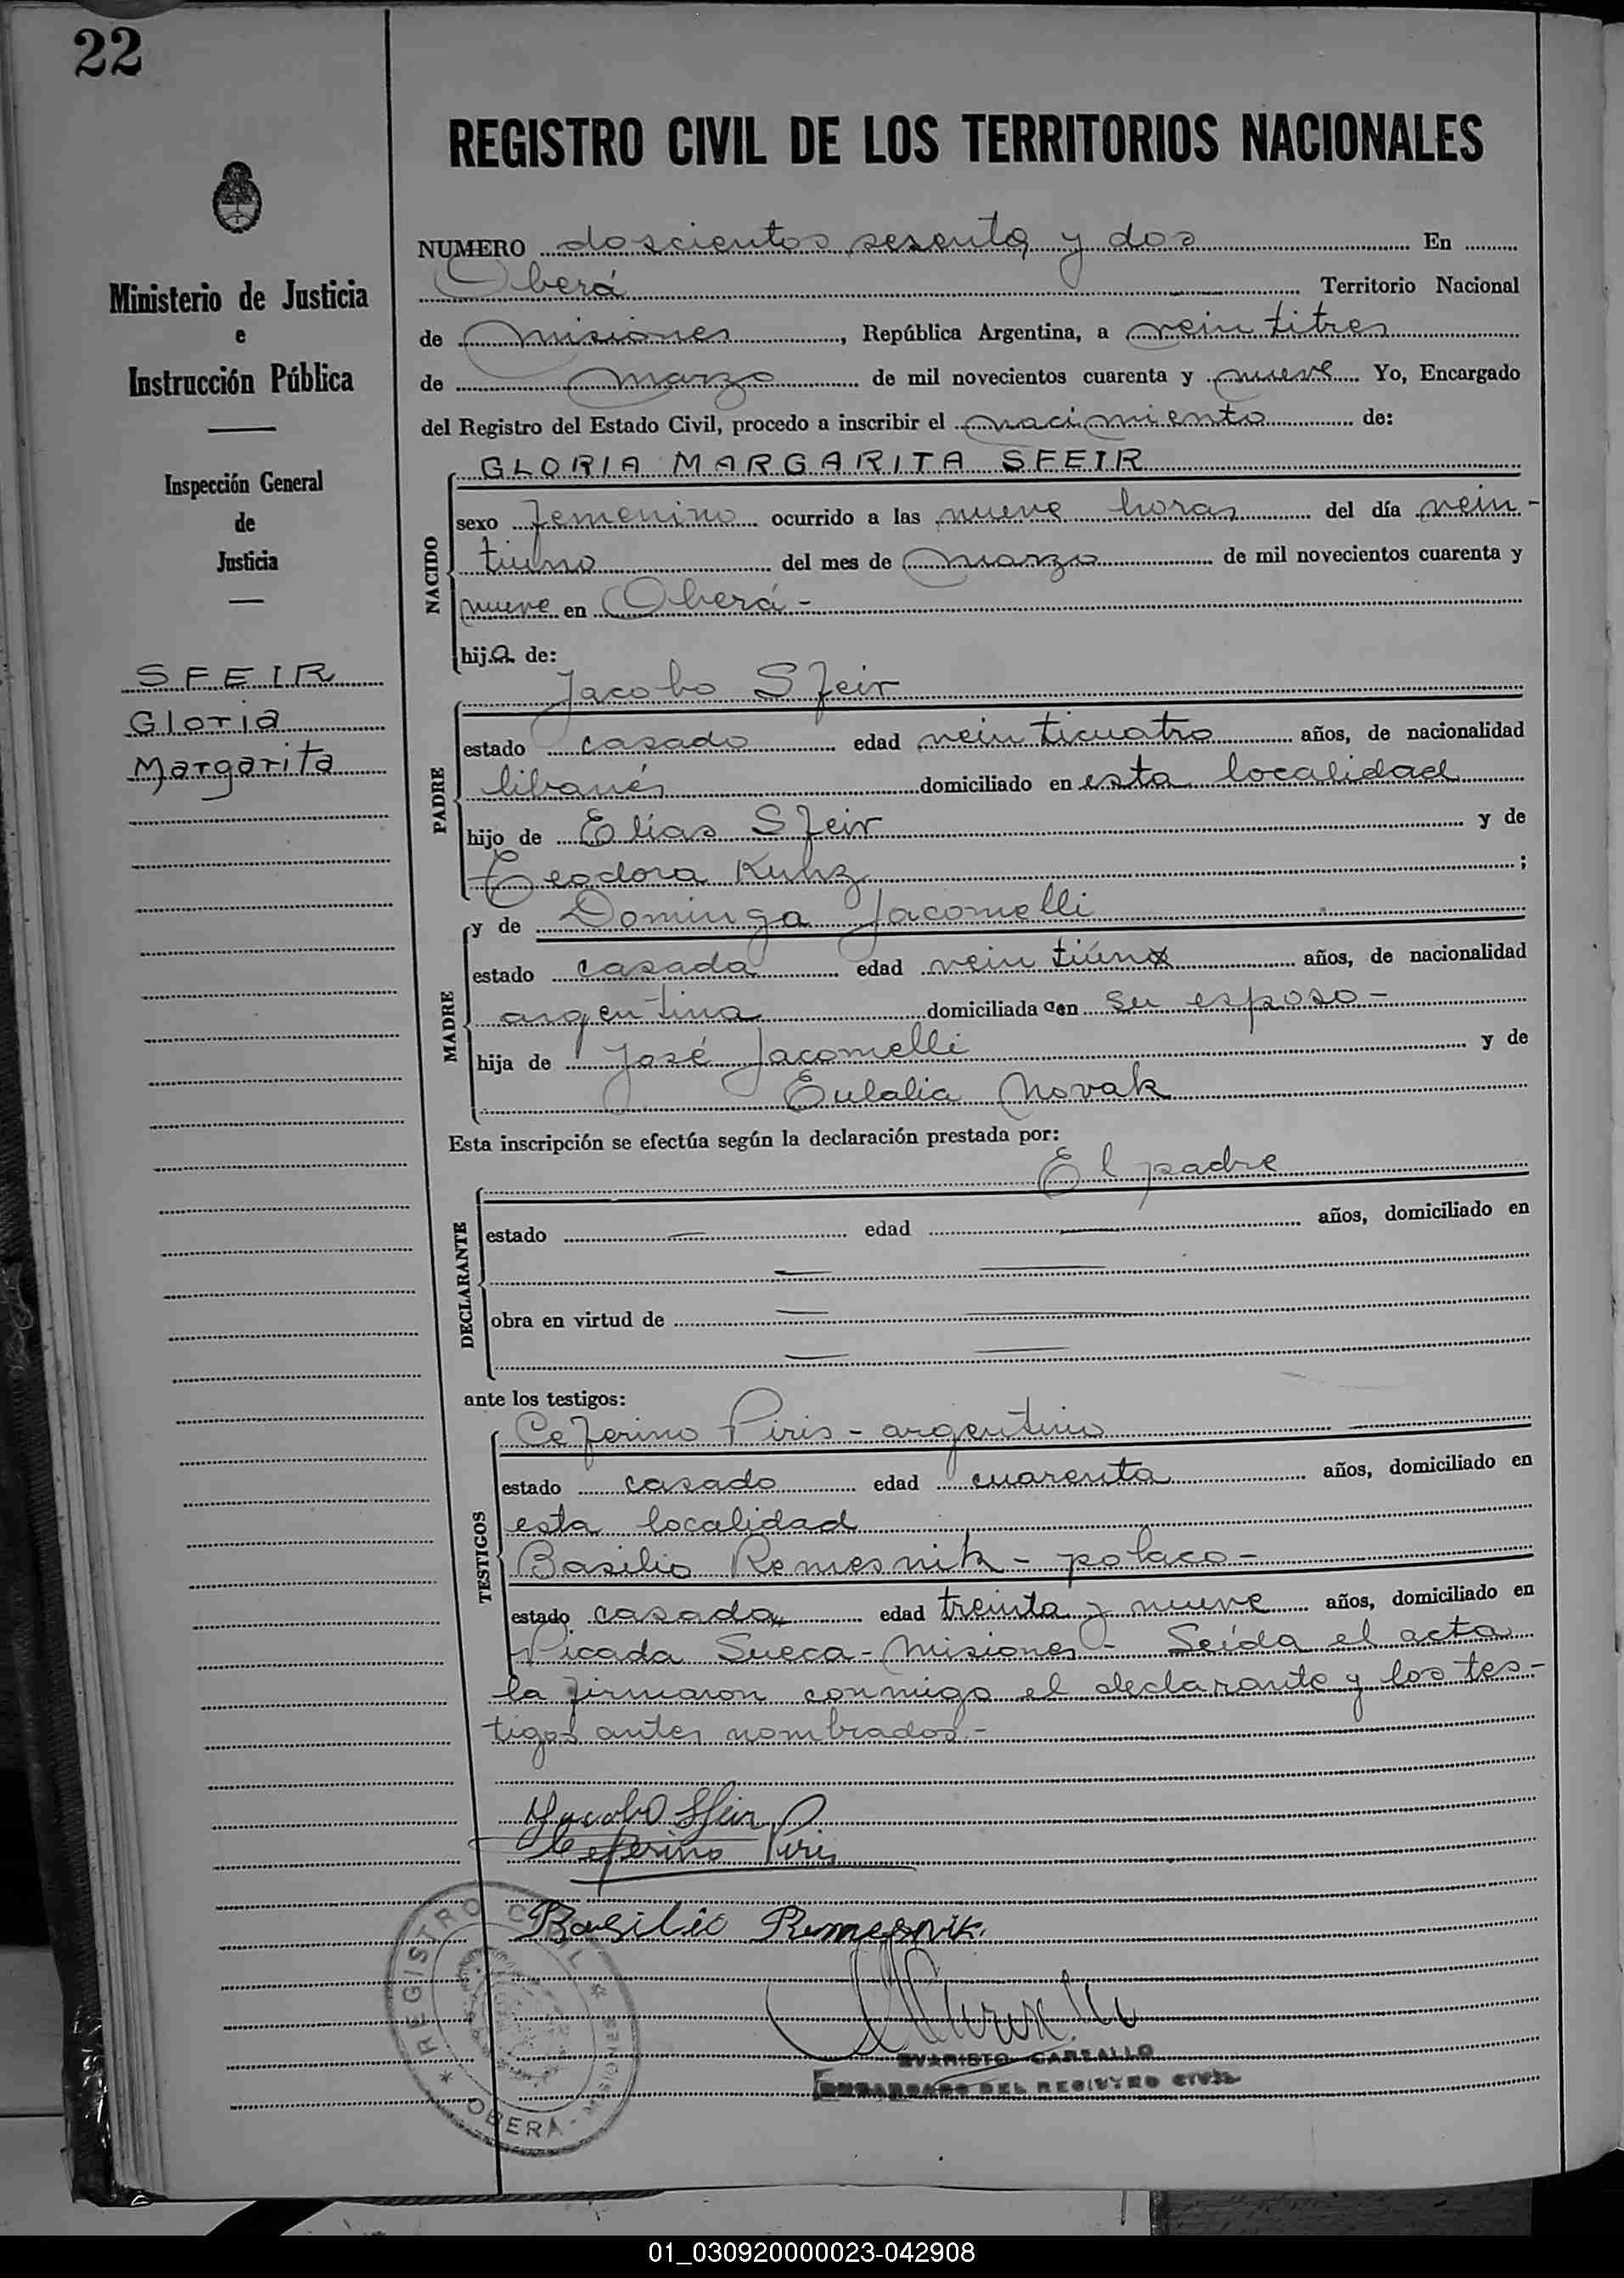 22
REGISTRO CIVIL DE LOS TERRITORIOS NACIONALES
Ministerio de Justicia
e
Instrucción Pública
Inspección General
de
Justicia
SFEIR
Gloria
Margarita
NUMERO doscientos sesenta y dos En
Oberá Territorio Nacional
de Misiones, República Argentina, a veintitres
de Marzo de mil novecientos cuarenta y nueve Yo, Encargado
del Registro del Estado Civil, procedo a inscribir el nacimiento de:
GLORIA MARGARITA SFEIR
NACIDO
sexo femenino ocurrido a las nueve horas del día vein-
tiuno del mes de Marzo de mil novecientos cuarenta y
nueve en Oberá-
hija de:
Jacobo Sfeir
PADRE
estado casado edad veinticuatro años, de nacionalidad
libanés domiciliado en esta localidad
hijo de Elías Sfeir y de
Teodora Kuhz;
y de Dominga Jacomelli
MADRE
estado casada edad veintiún años, de nacionalidad
argentina domiciliada con su esposo-
hija de José Jacomelli y de
Eulalia Novak
Esta inscripción se efectúa según la declaración prestada por:
El padre
DECLARANTE
estado — edad — años, domiciliado en
— —
obra en virtud de — —
— —
ante los testigos:
TESTIGOS
Ceferino Piris - argentino
estado casado edad cuarenta años, domiciliado en
esta localidad
Basilio Remesnik - polaco -
estado casado edad treinta y nueve años, domiciliado en
Picada Sueca - Misiones - Leída el acta
la firmaron conmigo el declarante y los tes-
tigos antes nombrados.-
Jacobo Sfeir
Ceferino Piris
Basilio Remesnik.
EVARISTO CARBALLO
ENCARGADO DEL REGISTRO CIVIL
* REGISTRO CIVIL *
OBERÁ - MISIONES
01_030920000023-042908